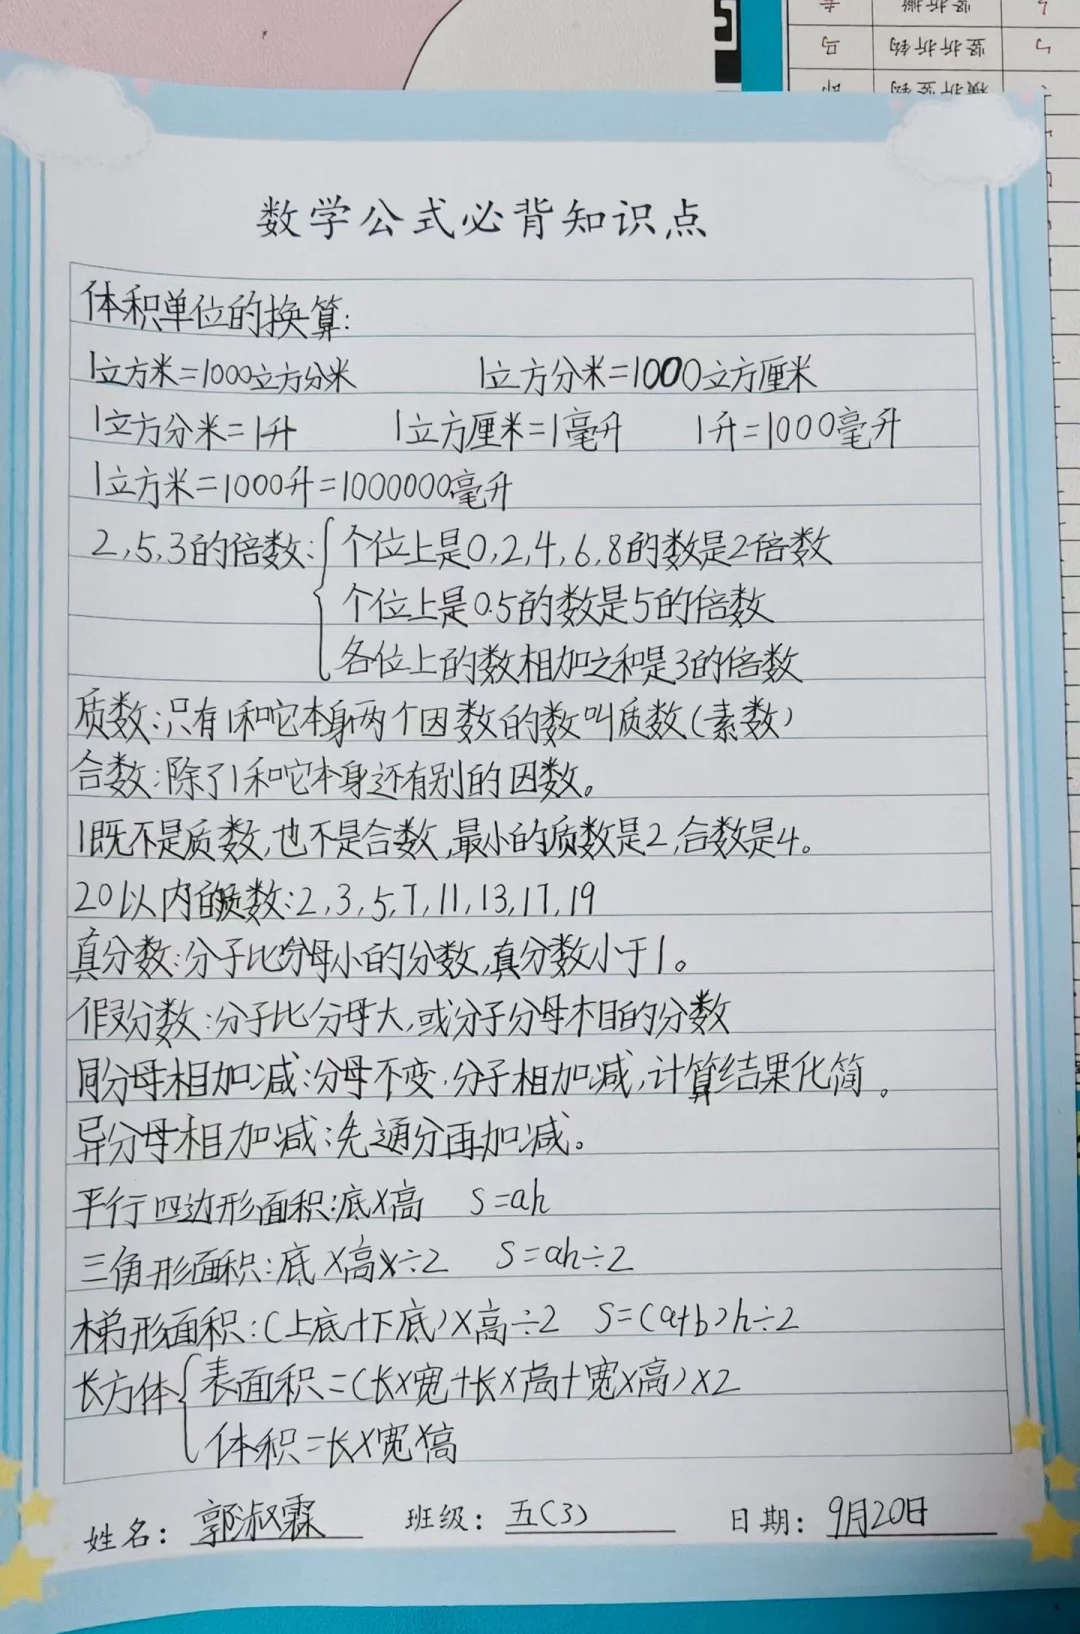 竖折撇
马 竖折折钩 ㄣ
即 横折竖钩
数学公式必背知识点
体积单位的换算:
1立方米=1000立方分米 1立方分米=1000立方厘米
1立方分米=1升 1立方厘米=1毫升 1升=1000毫升
1立方米=1000升=1000000毫升
2,5,3的倍数:{个位上是0,2,4,6,8的数是2倍数
个位上是0.5的数是5的倍数
各位上的数相加之和是3的倍数
质数:只有1和它本身两个因数的数叫质数(素数)
合数:除了1和它本身还有别的因数。
1既不是质数,也不是合数,最小的质数是2,合数是4。
20以内的质数:2,3,5,7,11,13,17,19
真分数:分子比分母小的分数,真分数小于1。
假分数:分子比分母大,或分子分母相的分数
同分母相加减:分母不变,分子相加减,计算结果化简。
异分母相加减:先通分再加减。
平行四边形面积:底×高 S=ah
三角形面积:底×高×÷2 S=ah÷2
梯形面积:(上底+下底)×高÷2 S=(a+b)h÷2
长方体{表面积=(长×宽+长×高+宽×高)×2
体积=长×宽×高
姓名:郭淑霖 班级:五(3) 日期:9月20日